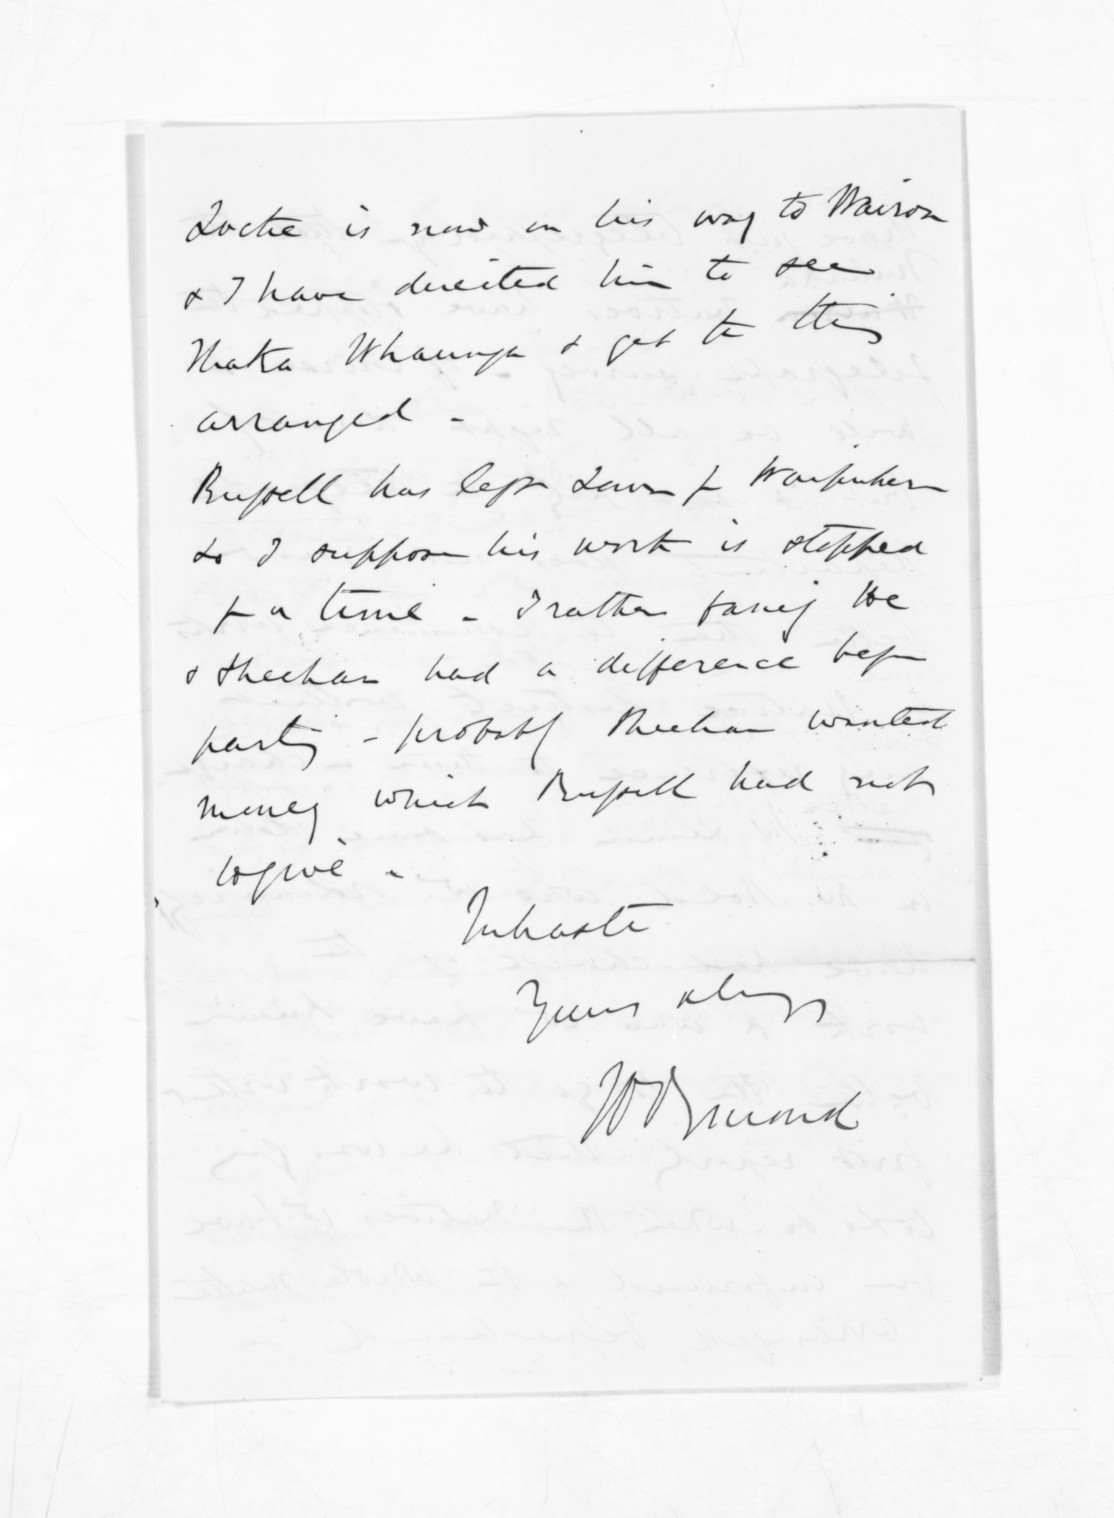 Locke is now on his way to Wairoa
& I have directed him to see
Ihaka Whaunga & get the thing
arranged -
Russell has left town for Waipukura
so I suppose his work is stopped
for a time - I rather fancy He
& Sheehan had a difference before
parting - probably Sheehan wanted
money which Russell had not
to give -
In haste
Yours always
JD Ormond